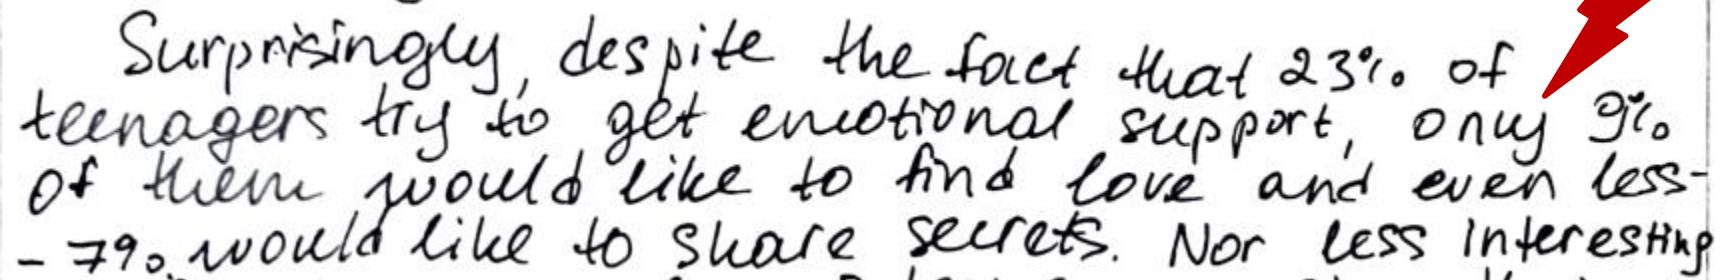 Surprisingly, despite the fact that 23% of
teenagers try to get emotional support, only 9%
of them would like to find love and even less-
- 7% would like to share secrets. Nor less interesting